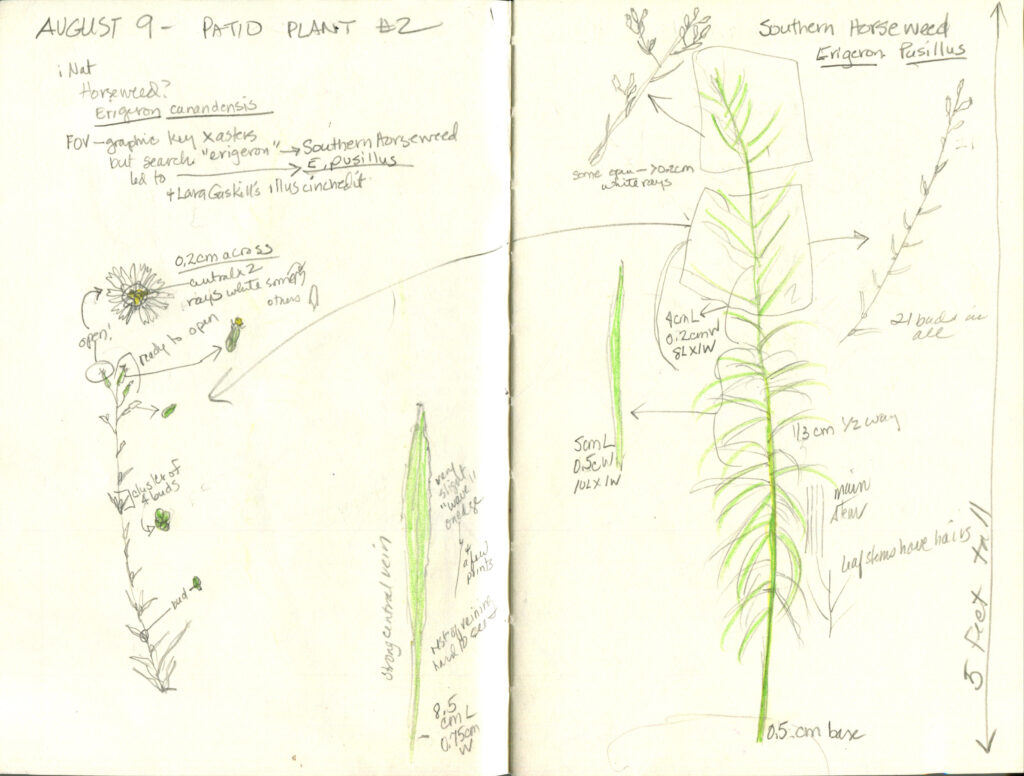 AUGUST 9 - PATIO PLANT #2
iNat
Horseweed?
Erigeron canandensis
FOV - graphic key x asters
but search "erigeron" → Southern Horseweed
led to → E. pusillus
+ Lara Gaskill's illus cinched it.
0.2cm across
central x 2
rays white some
others
open!
ready to open
cluster of
4 buds
bud
Strong central vein
very
slight
"wave"
on edge
+
a few
points
rest of veining
hard to see
8.5
cm L
0.75cm
W
Southern Horseweed
Erigeron Pusillus
some open → 0.2cm
white rays
21
21 buds in
all
2
4cm L
0.2cm W
8L x 1W
5cm L
0.5cW
10L x 1W
1/3 cm 1/2 way
main
stem
leaf stems have hairs
5 feet tall
0.5 cm base